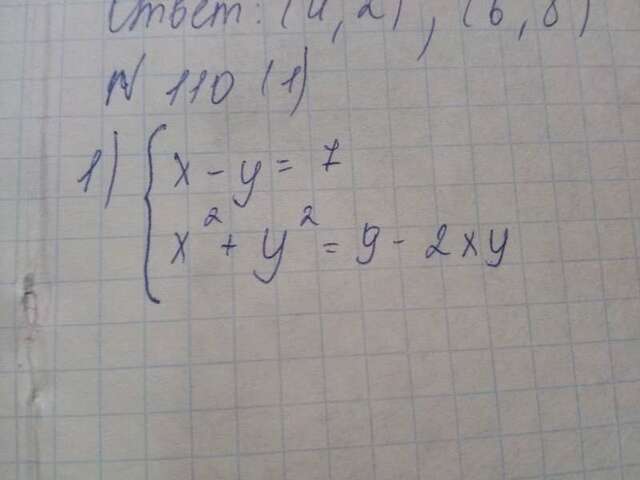 Ответ: (4, 2), (6, 8)
№ 110 (1)
1) { x - y = 7
x² + y² = 9 - 2xy